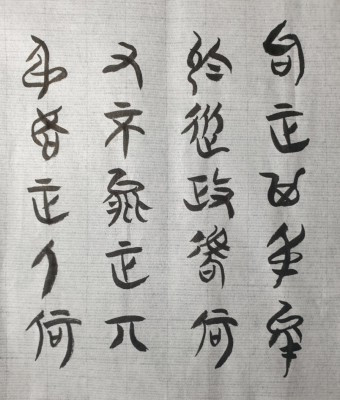 苟正其身矣
於從政乎何
有不能正其
身如正人何